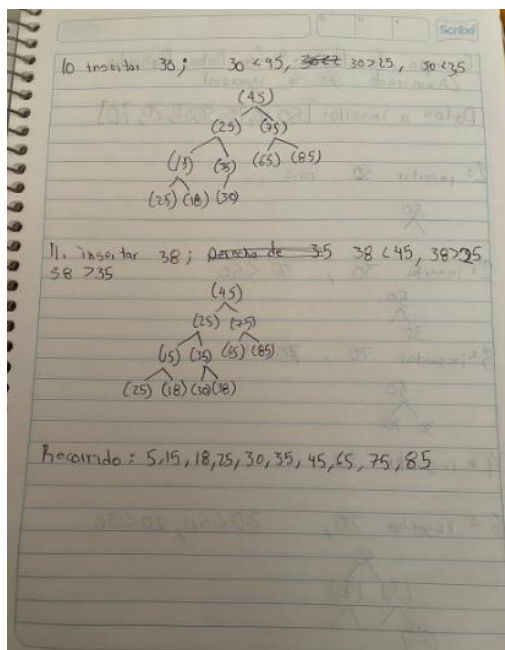 Scribe
10 insertar 30; 30 < 45, 30 > 25, 30 < 35
(45)
(25) (75)
(15) (35) (65) (85)
(25) (18) (30)
11. insertar 38; Derecha de 35 38 < 45, 38 > 25
38 > 35
(45)
(25) (75)
(15) (35) (65) (85)
(25) (18) (30) (38)
Recorrido: 5, 15, 18, 25, 30, 35, 45, 65, 75, 85